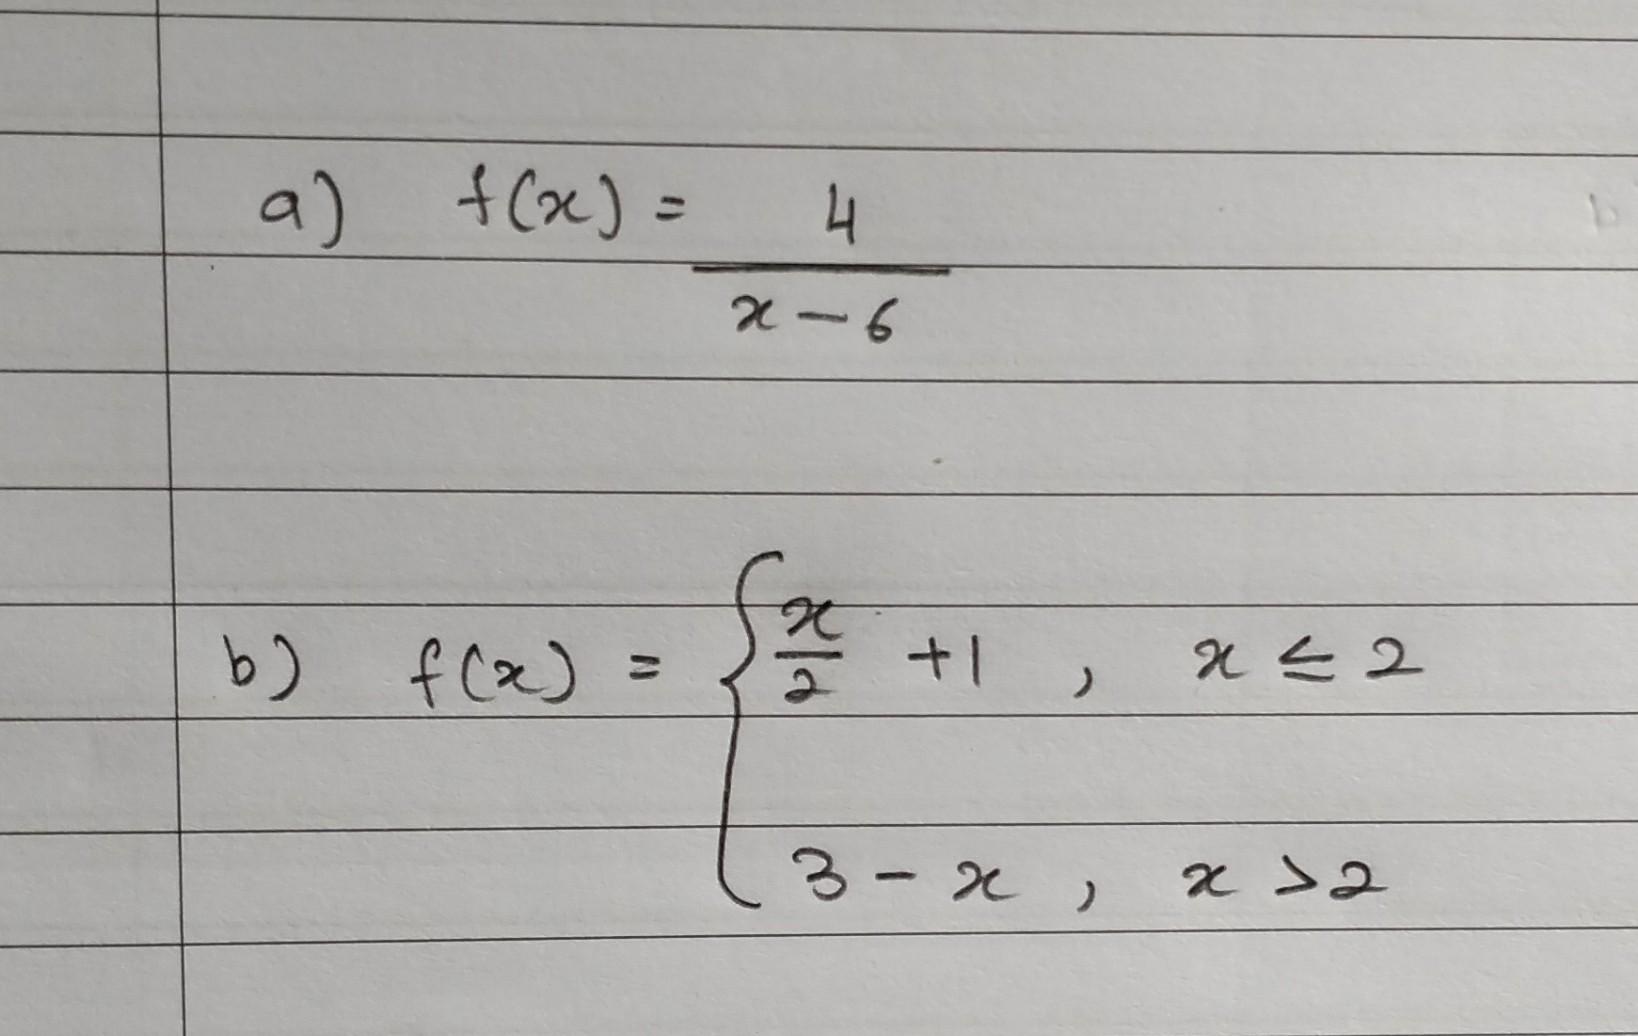 a) f(x) = 4
x - 6
b) f(x) = { x/2 + 1 , x ≤ 2
3 - x , x > 2